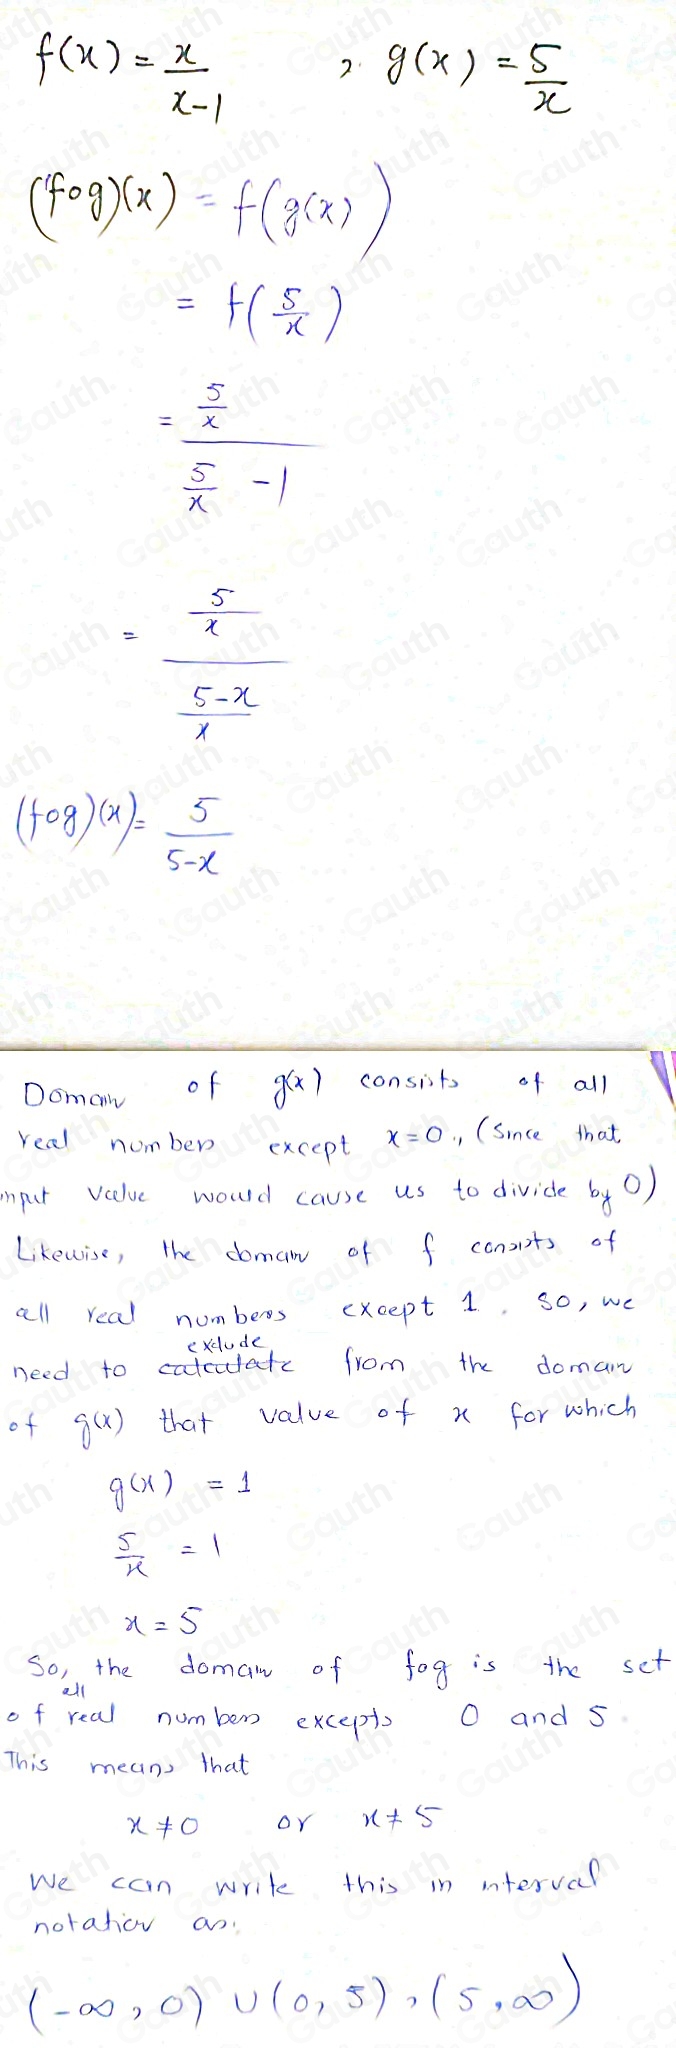 f(x) = x/(x-1) , g(x) = 5/x
(fog)(x) = f(g(x))
= f(5/x)
= (5/x)/(5/x - 1)
= (5/x)/((5-x)/x)
(fog)(x) = 5/(5-x)
Domain of g(x) consists of all
real numbers except x=0., (Since that
input value would cause us to divide by 0)
Likewise, the domain of f consists of
all real numbers except 1. so, we
need to exclude from the domain
of g(x) that value of x for which
g(x) = 1
5/x = 1
x = 5
So, the domain of fog is the set
of all real numbers excepts 0 and 5.
This means that
x ≠ 0 or x ≠ 5
We can write this in interval
notation as:
(-∞, 0) ∪ (0, 5), (5, ∞)